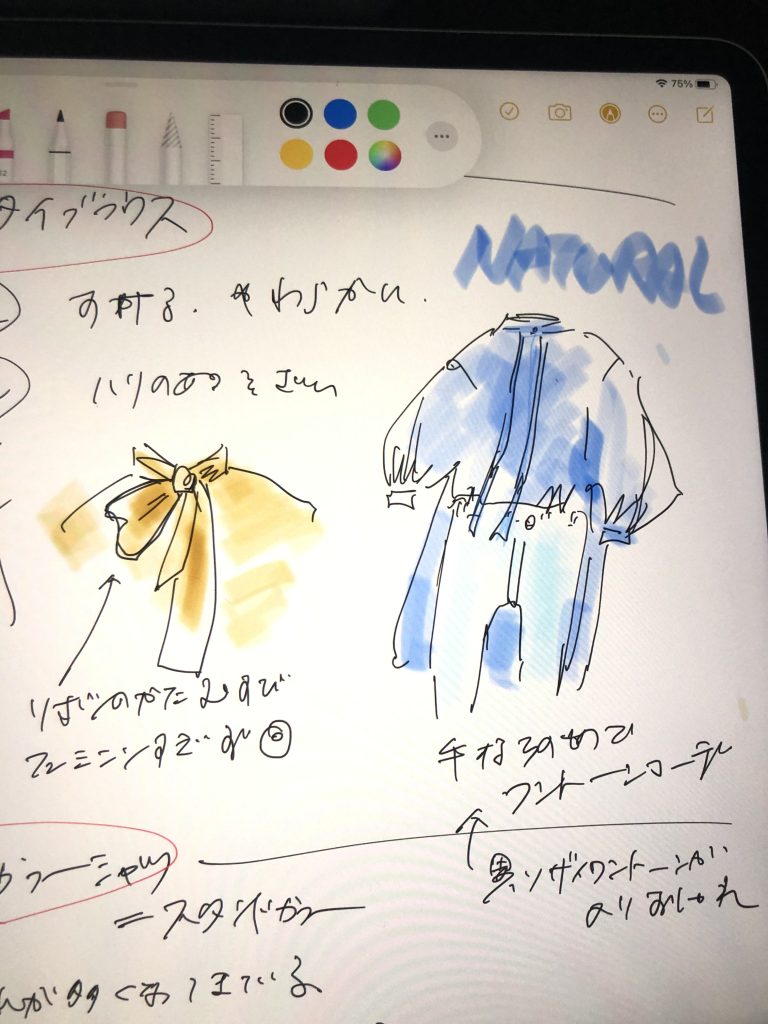 75%
タイブラウス
NATURAL
すける. やわらかい.
ハリのある そざい
りぼんのかたむすび
フェミニンすぎず◎
ワントーンコーデ
異ソザイワントーンが
よりおしゃれ
カラーシャツ
=スタンドカラー
が多くなってきている